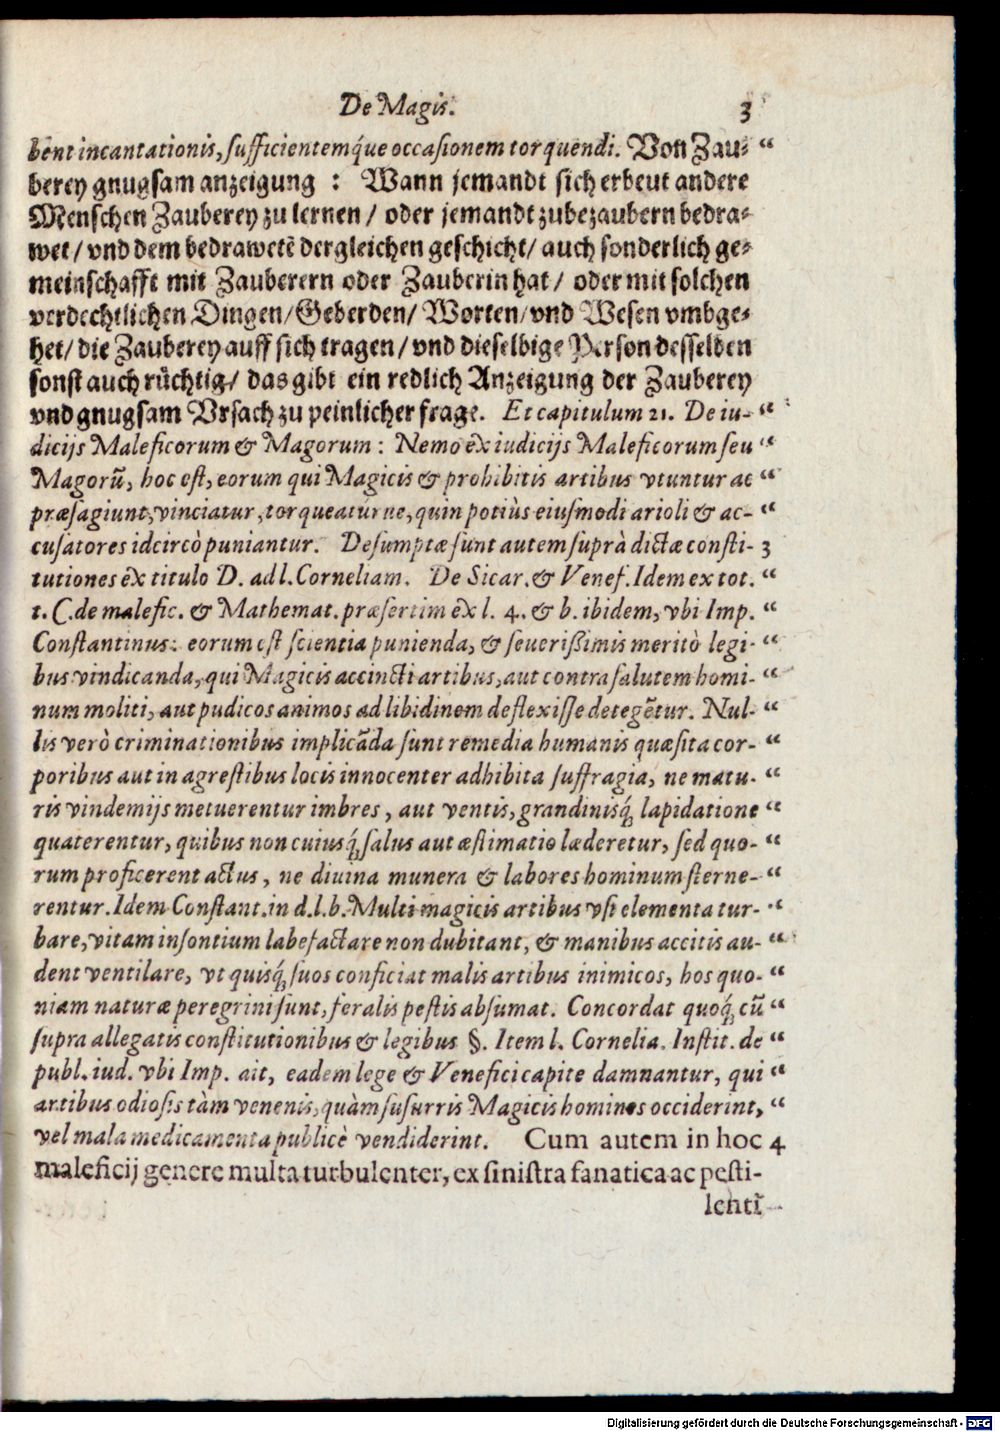 De Magis. 3
bent incantationis, sufficientemq́ue occasionem torquendi. Von Zau- “
berey gnugsam anzeigung : Wann jemandt sich erbeut andere
Menschen Zauberey zu lernen / oder jemandt zubezaubern bedra-
wet / vnd dem bedrawetē dergleichen geschicht / auch sonderlich ge-
meinschafft mit Zauberern oder Zauberin hat / oder mit solchen
verdechtlichen Dingen / Geberden / Worten / vnd Wesen vmbge-
het / die Zauberey auff sich tragen / vnd dieselbige Person desselben
sonst auch rüchtig / das gibt ein redlich Anzeigung der Zauberey
vnd gnugsam Vrsach zu peinlicher frage. Et capitulum 21. De iu- “
dicijs Maleficorum & Magorum : Nemo ex iudicijs Maleficorum seu “
Magorū, hoc est, eorum qui Magicis & prohibitis artibus vtuntur ac “
præsagiunt, vinciatur, torqueaturue, quin potiùs eiusmodi arioli & ac- “
cusatores idcircò puniantur. Desumptæ sunt autem suprà dictæ consti- 3
tutiones ex titulo D. ad l. Corneliam. De Sicar. & Venef. Idem ex tot. “
t. C. de malefic. & Mathemat. præsertim ex l. 4. & b. ibidem, vbi Imp. “
Constantinus: eorum est scientia punienda, & seuerißimis meritò legi- “
bus vindicanda, qui Magicis accincti artibus, aut contra salutem homi- “
num moliti, aut pudicos animos ad libidinem deflexisse detegētur. Nul- “
lis verò criminationibus implicāda sunt remedia humanis quæsita cor- “
poribus aut in agrestibus locis innocenter adhibita suffragia, ne matu- “
ris vindemijs metuerentur imbres, aut ventis, grandinisq́; lapidatione “
quaterentur, quibus non cuiusq́; salus aut æstimatio læderetur, sed quo- “
rum proficerent actus, ne diuina munera & labores hominum sterne- “
rentur. Idem Constant. in d. l. b. Multi magicis artibus vsi elementa tur- “
bare, vitam insontium labefactare non dubitant, & manibus accitis au- “
dent ventilare, vt quisq́; suos conficiat malis artibus inimicos, hos quo- “
niam naturæ peregrini sunt, feralis pestis absumat. Concordat quoq́; cū “
supra allegatis constitutionibus & legibus §. Item l. Cornelia. Instit. de “
publ. iud. vbi Imp. ait, eadem lege & Venefici capite damnantur, qui “
artibus odiosis tàm venenis, quàm susurris Magicis homines occiderint, “
vel mala medicamenta publicè vendiderint. Cum autem in hoc 4
maleficij genere multa turbulenter, ex sinistra fanatica ac pesti-
lenti
Digitalisierung gefördert durch die Deutsche Forschungsgemeinschaft - DFG